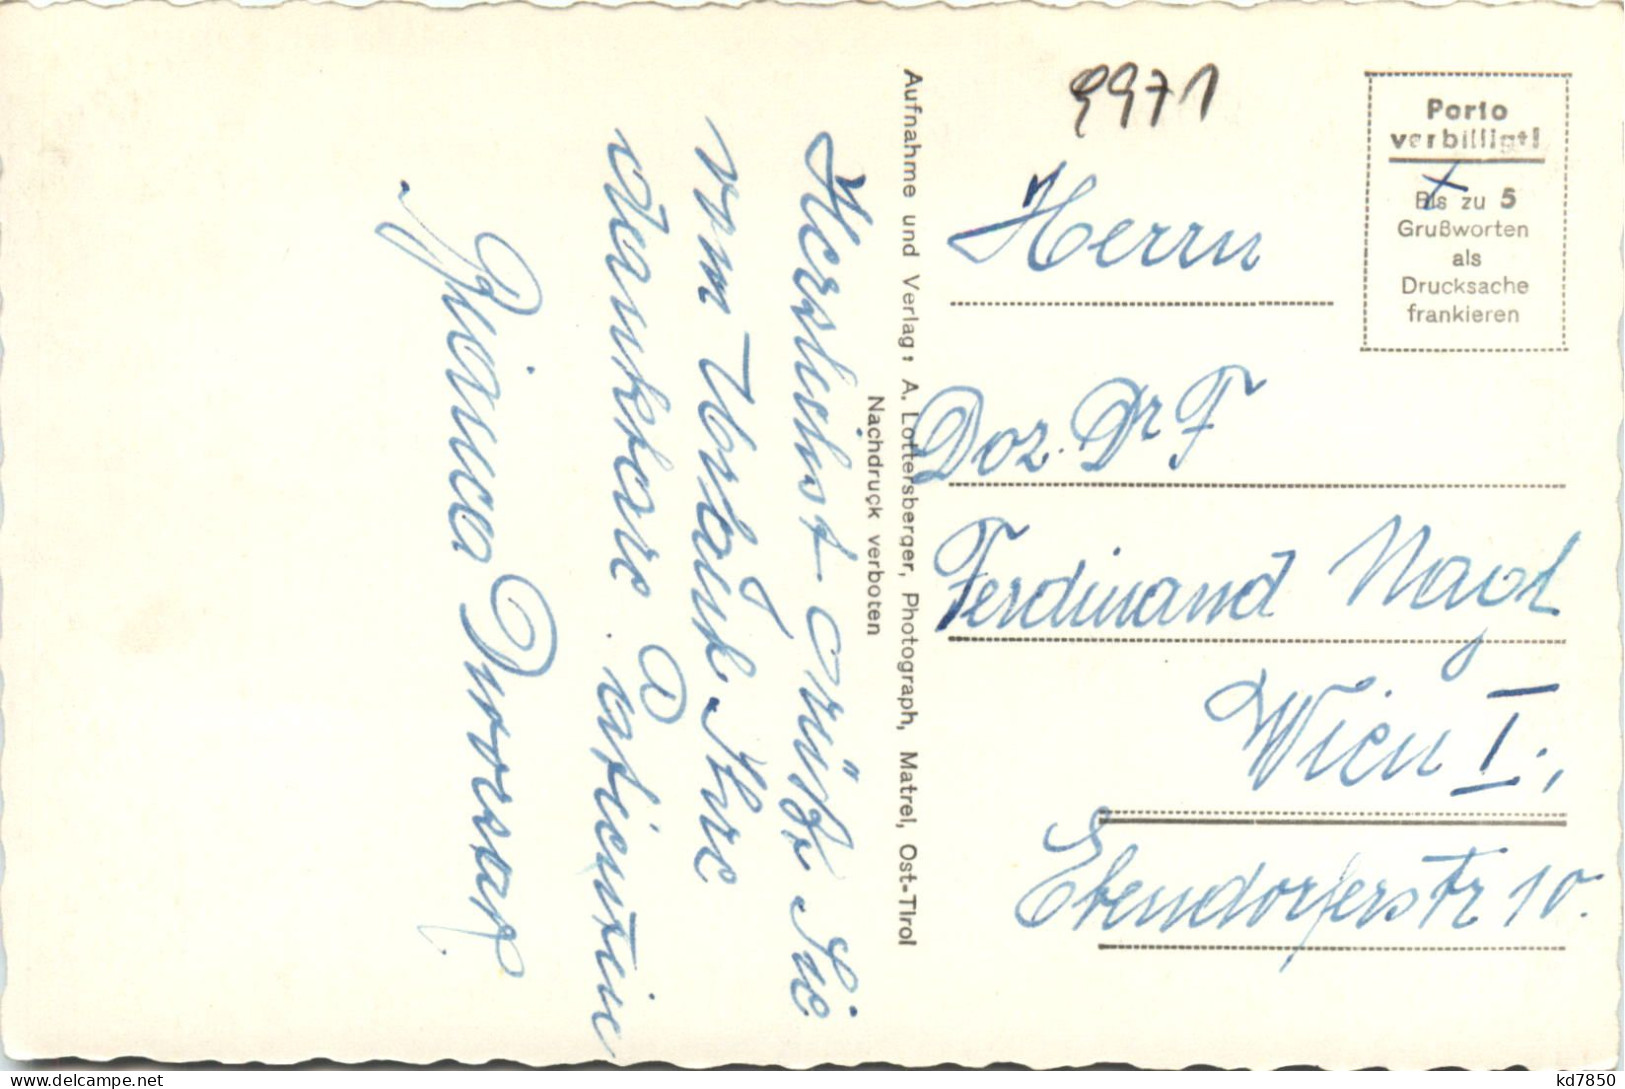 9971
Porto
verbilligt!
Bis zu 5
Grußworten
als
Drucksache
frankieren
Herrn
Doz. Dr F
Ferdinand Nagl
Wien I.,
Ebendorferstr 10.
Aufnahme und Verlag: A. Lottersberger, Photograph, Matrei, Ost-Tirol
Nachdruck verboten
Herzlichst grüßt Sie
vom Urlaub Ihre
dankbare Patientin
kd7850